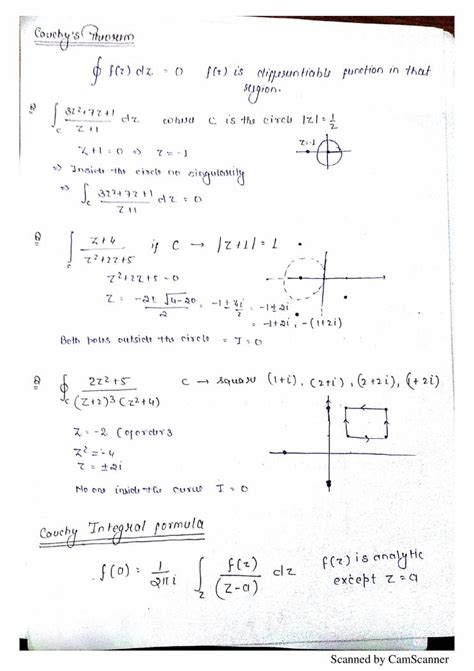 Cauchy's Theorem
∮ f(z) dz = 0   f(z) is differentiable function in that
region.
Q ∫_C (3z²+7z+1)/(z+1) dz   where C is the circle |z| = 1/2
z+1 = 0 ⇒ z = -1
z=-1
⇒ Inside the circle no singularity
⇒ ∫_C (3z²+7z+1)/(z+1) dz = 0
Q ∫_C (z+4)/(z²+2z+5)   if C → |z+1| = 1
z²+2z+5 = 0
z = (-2±√(4-20))/2 = -1±4i/2 = -1±2i
= -1+2i, -(1+2i)
Both poles outside the circle = I = 0
Q ∮_C (2z²+5)/((z+2)³(z²+4))   C → square (1+i), (2+i), (2+2i), (1+2i)
z = -2 (order 3
z² = -4
z = ±2i
No one inside the curve I = 0
Cauchy Integral formula
f(a) = 1/(2πi) ∫ f(z)/(z-a) dz   f(z) is analytic
except z = a
Scanned by CamScanner